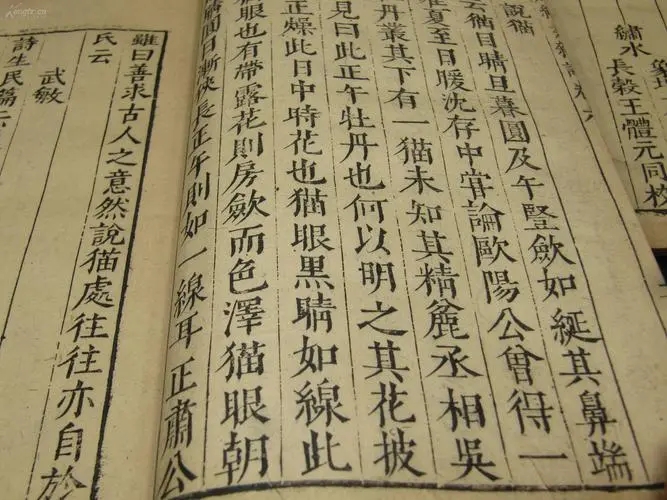 繡水
長穀王體元同校
卷六
說猫
云猫目睛旦暮圓及午豎斂如綖其鼻端
夏至日暖沈存中嘗論歐陽公曾得一
丹叢其下有一猫未知其精麄丞相吳
見曰此正午牡丹也何以明之其花披
正燥此日中時花也猫眼黑睛如線此
眼也有帶露花則房斂而色澤猫眼朝
睛圓日漸狹長正午則如一線耳正肅公
雖曰善求古人之意然說猫處往往亦自於
氏云
武敏
詩生民篇云